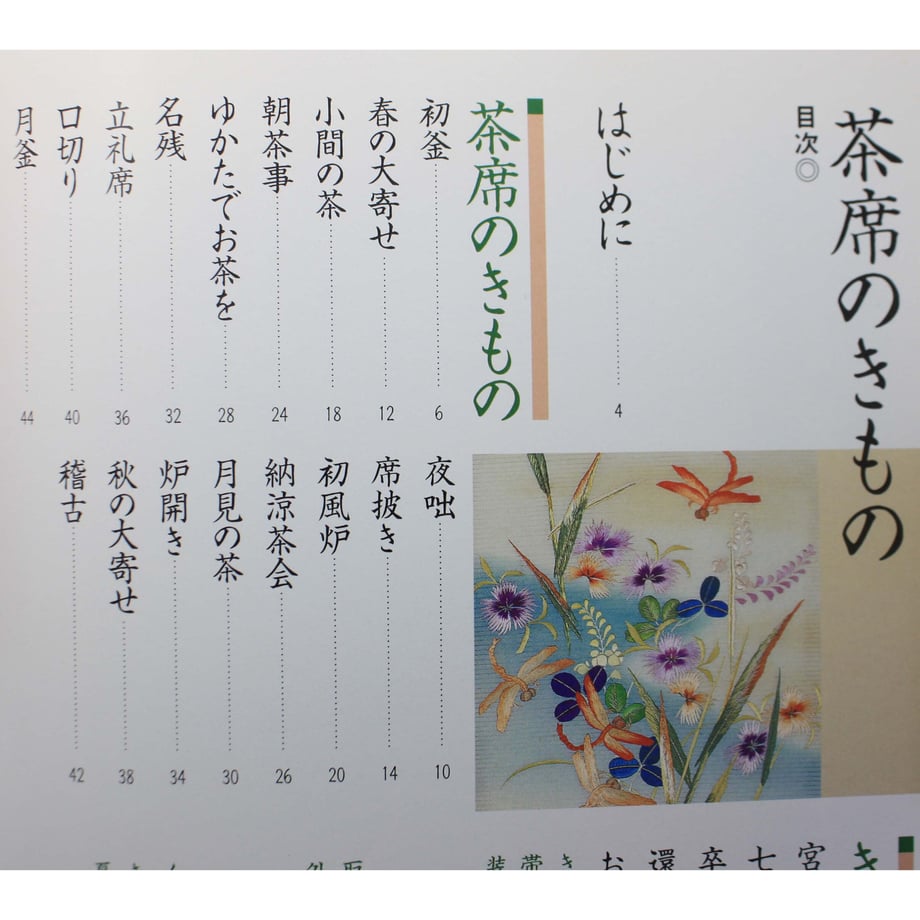 茶席のきもの
目次◎
はじめに 4
茶席のきもの
初釜 6
春の大寄せ 12
小間の茶 18
朝茶事 24
ゆかたでお茶を 28
名残 32
立礼席 36
口切り 40
月釜 44
夜咄 10
席披き 14
初風炉 20
納涼茶会 26
月見の茶 30
炉開き 34
秋の大寄せ 38
稽古 42
き
宮
七
卒
還
お
き
帯
装